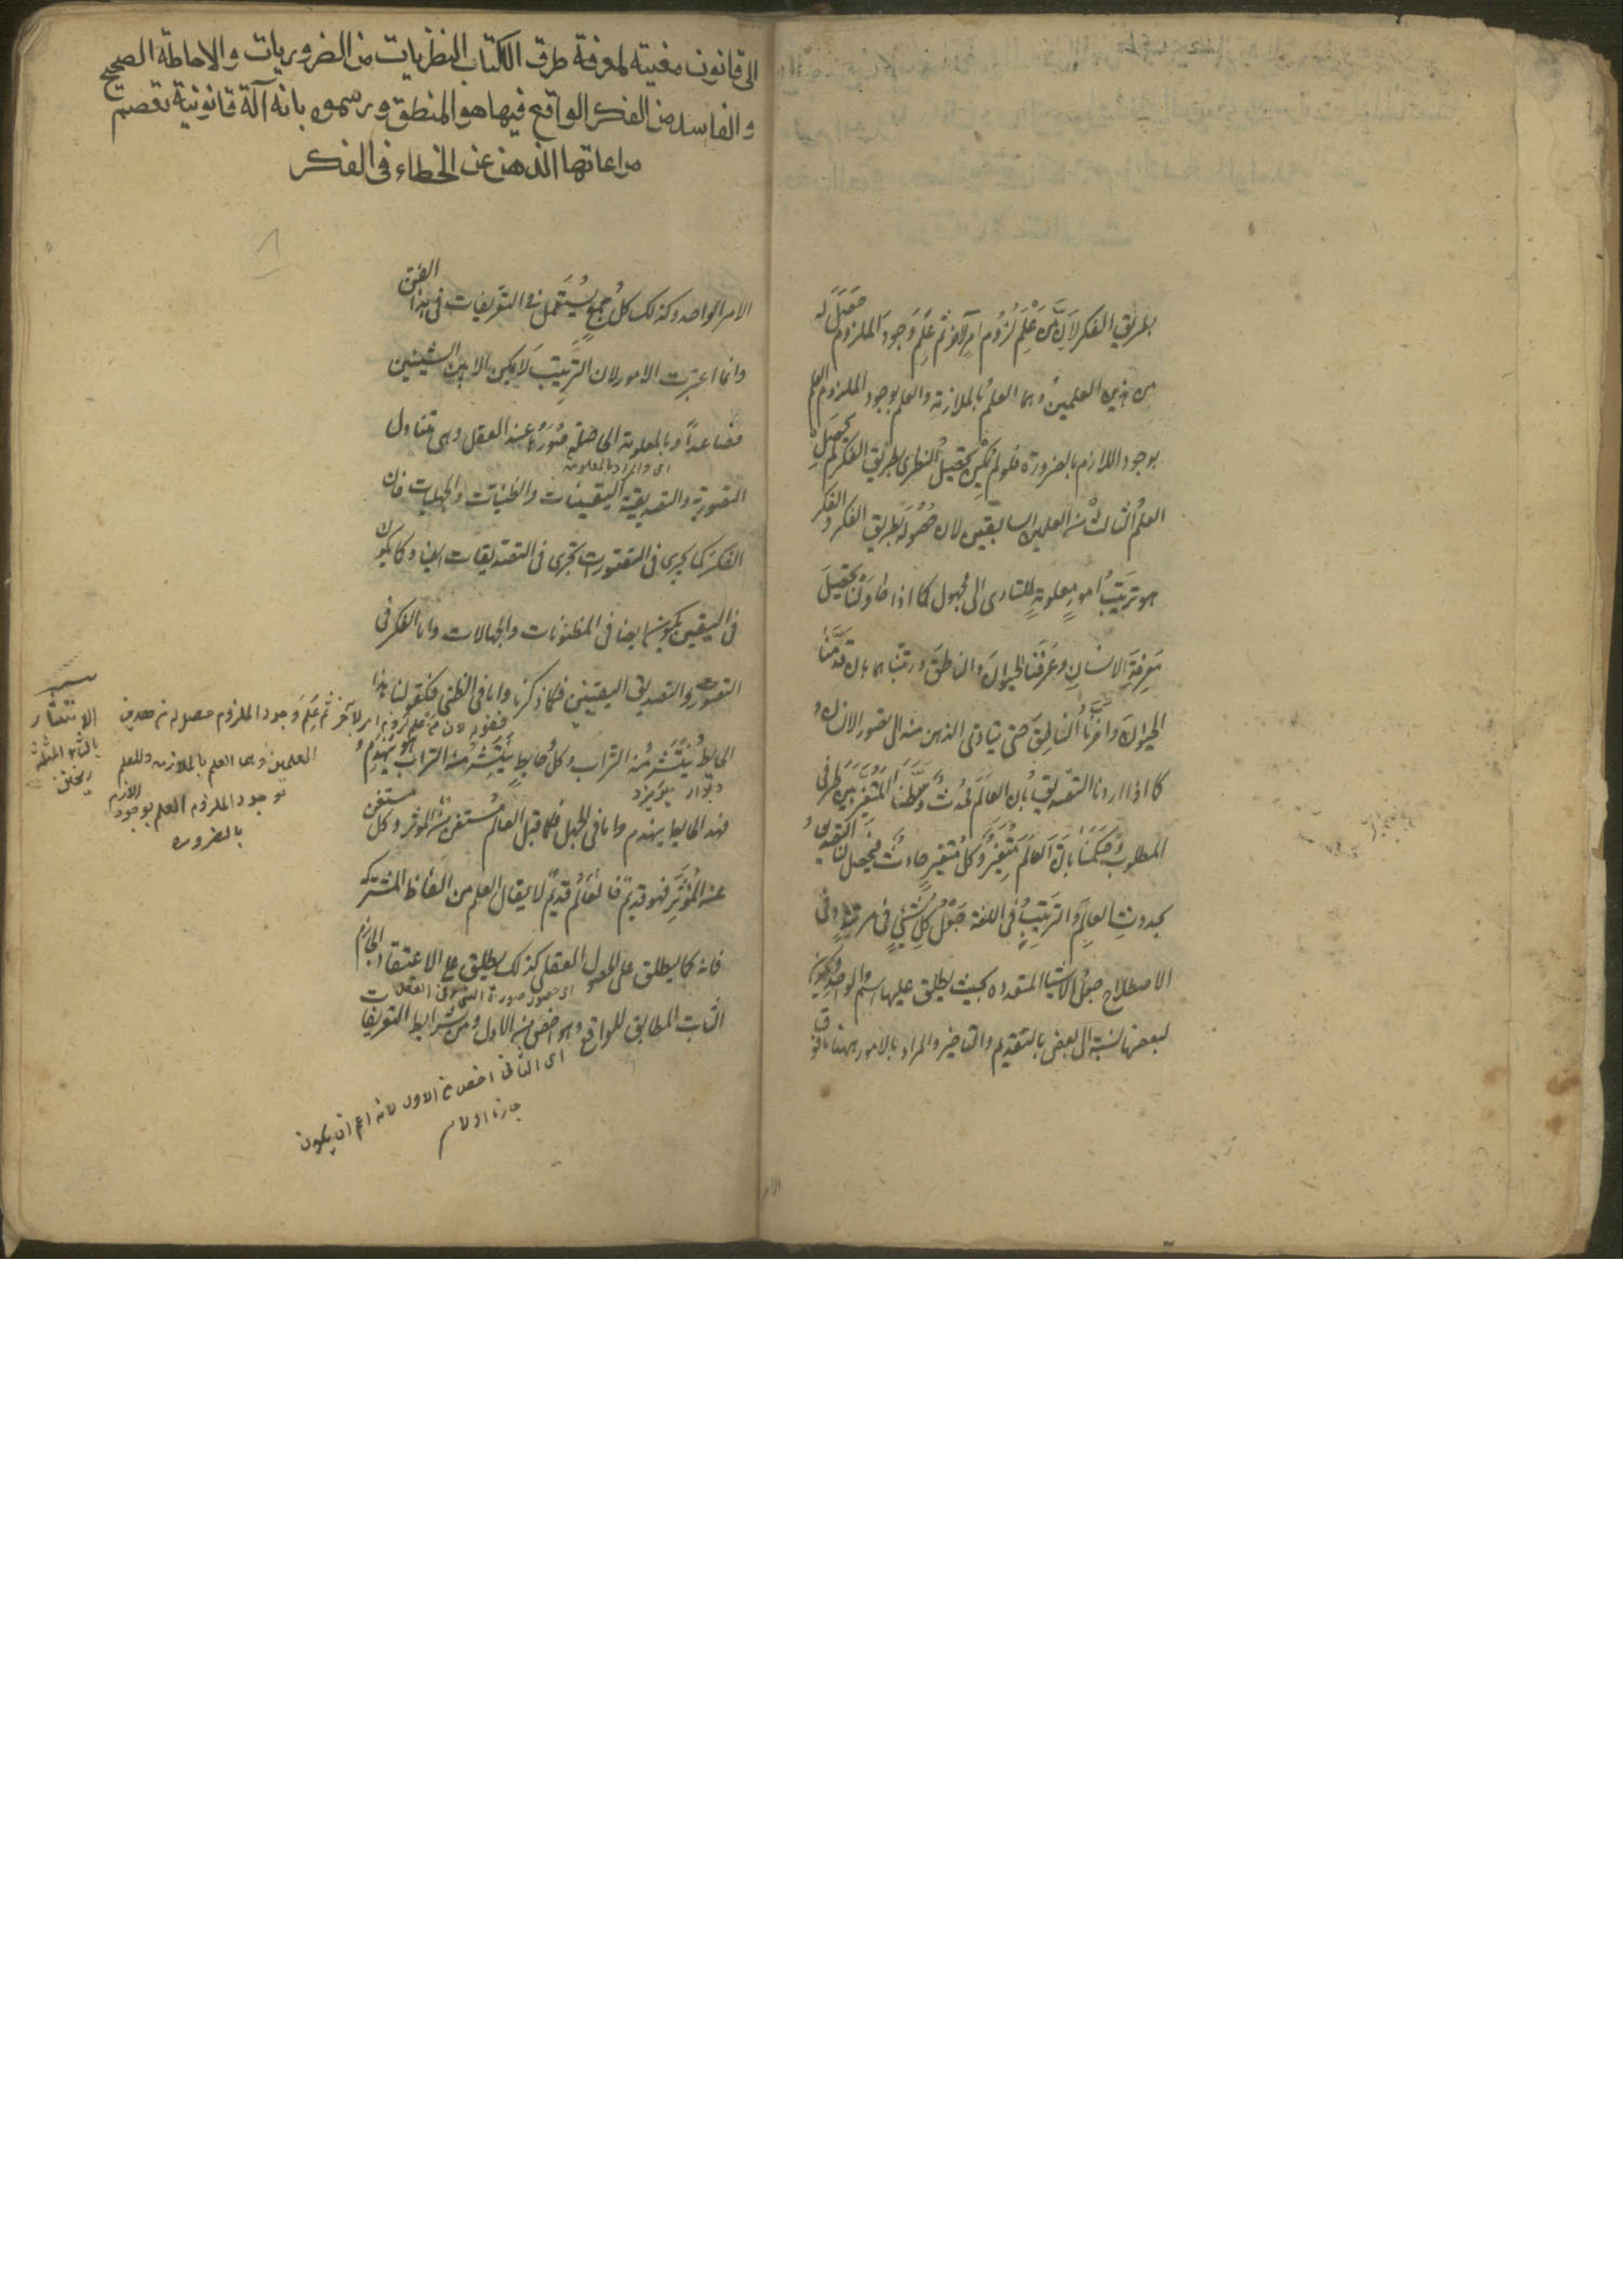 بطريق الفكر لان من علم لزوم امر لآخر ثم علم وجود الملزوم حصل له
من هذين العلمين وهما العلم بالملازمة والعلم بوجود الملزوم العلم
بوجود اللازم بالضرورة فلو لم يكن تحصيل النظرى بطريق الفكر لم يحصل
العلم الثالث من العلمين السابقين لان حصوله بطريق الفكر والفكر
هو ترتيب امور معلومة للتادى الى مجهول كما اذا حاولنا تحصيل
معرفة الانسان وعرفنا الحيوان والناطق ورتبناهما بان قدمنا
الحيوان واخرنا الناطق حتى يتادى الذهن منه الى تصور الانسان و
كما اذا اردنا التصديق بان العالم محدث وسطنا المتغير بين طرفى
المطلوب وحكمنا بان العالم متغير وكل متغير حادث فيحصل لنا التصديق
بحدوث العالم والترتيب فى اللغة جعل كل شيئ فى مرتبته وفى
الاصطلاح جعل الاشياء المتعددة بحيث يطلق عليها اسم الواحد ويكون
لبعضها نسبة الى البعض بالتقديم والتاخير والمراد بالامور ههنا ما فوق
الى قانون مفيتة لمعرفة طرق الكتاب النظريات من الضروريات والاحاطة الصحيح
والفاسد من الفكر الواقع فيها هو المنطق ورسموه بانه آلة قانونية تعصم
مراعاتها الذهن عن الخطاء فى الفكر
الامر الواحد وكذلك كل جمع يستعمل فى التعريفات فى هذا الفن
وانما اعتبرت الامور لان الترتيب لا يمكن الا بين الشيئين
فصاعدا وبالمعلومة الحاصلة صورها عند العقل وهى تتناول
اى والمراد بالمعلومة
التصورية والتصديقية اليقينيات والظنيات والجهليات فان
الفكر كما يجرى فى التصورات يجرى فى التصديقات ايضا وكما يكون
فى اليقين يكون ايضا فى المظنونات والجهالات واما الفكر فى
التصور والتصديق اليقينى فكما ذكرنا واما فى الظنى فكقولنا هذا
الحايط ينتثر منه التراب وكل حايط ينتثر منه التراب هو ينهدم و
ديوار ميريزد
فهذا الحايط ينهدم واما فى الجهل فكما قيل العالم مستغن عن المؤثر وكل مستغن
عن المؤثر فهو قديم فالعالم قديم لا يقال العلم من الفاظ المشتركة
فانه كما يطلق على الحصول العقلى كذلك يطلق على الاعتقاد الجازم
اى حصول صورة الشئ فى العقل
الثابت المطابق للواقع وهو اخص من الاول ومن شرايط التعريفات
اى الثانى اخص من الاول لانه اعم ان يكون
جازما او لا م
فقوله لان من علم لزوم امر لآخر ثم علم وجود الملزوم حصل له من هذين
العلمين وهما العلم بالملازمه والعلم
بوجود الملزوم العلم بوجود اللازم
بالضروره
الانتثار
بالثاء المثلثة
ريختن